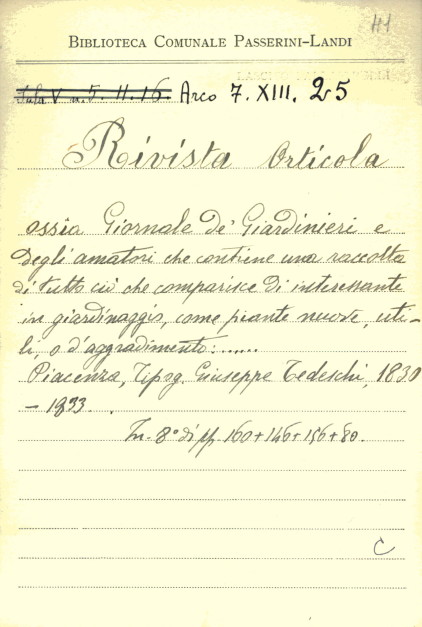 41
BIBLIOTECA COMUNALE PASSERINI-LANDI
Sala V n. 5. II. 16. Arco 7. XIII. 25
Rivista Orticola
ossia Giornale de' Giardinieri e
degli amatori che contiene una raccolta
di tutto ciò che comparisce di interessante
in giardinaggio, come piante nuove, uti-
li, o d'aggradimento:......
Piacenza, Tipog. Giuseppe Tedeschi, 1830
- 1833.
In-8° di pp. 160+146+156+80.
C